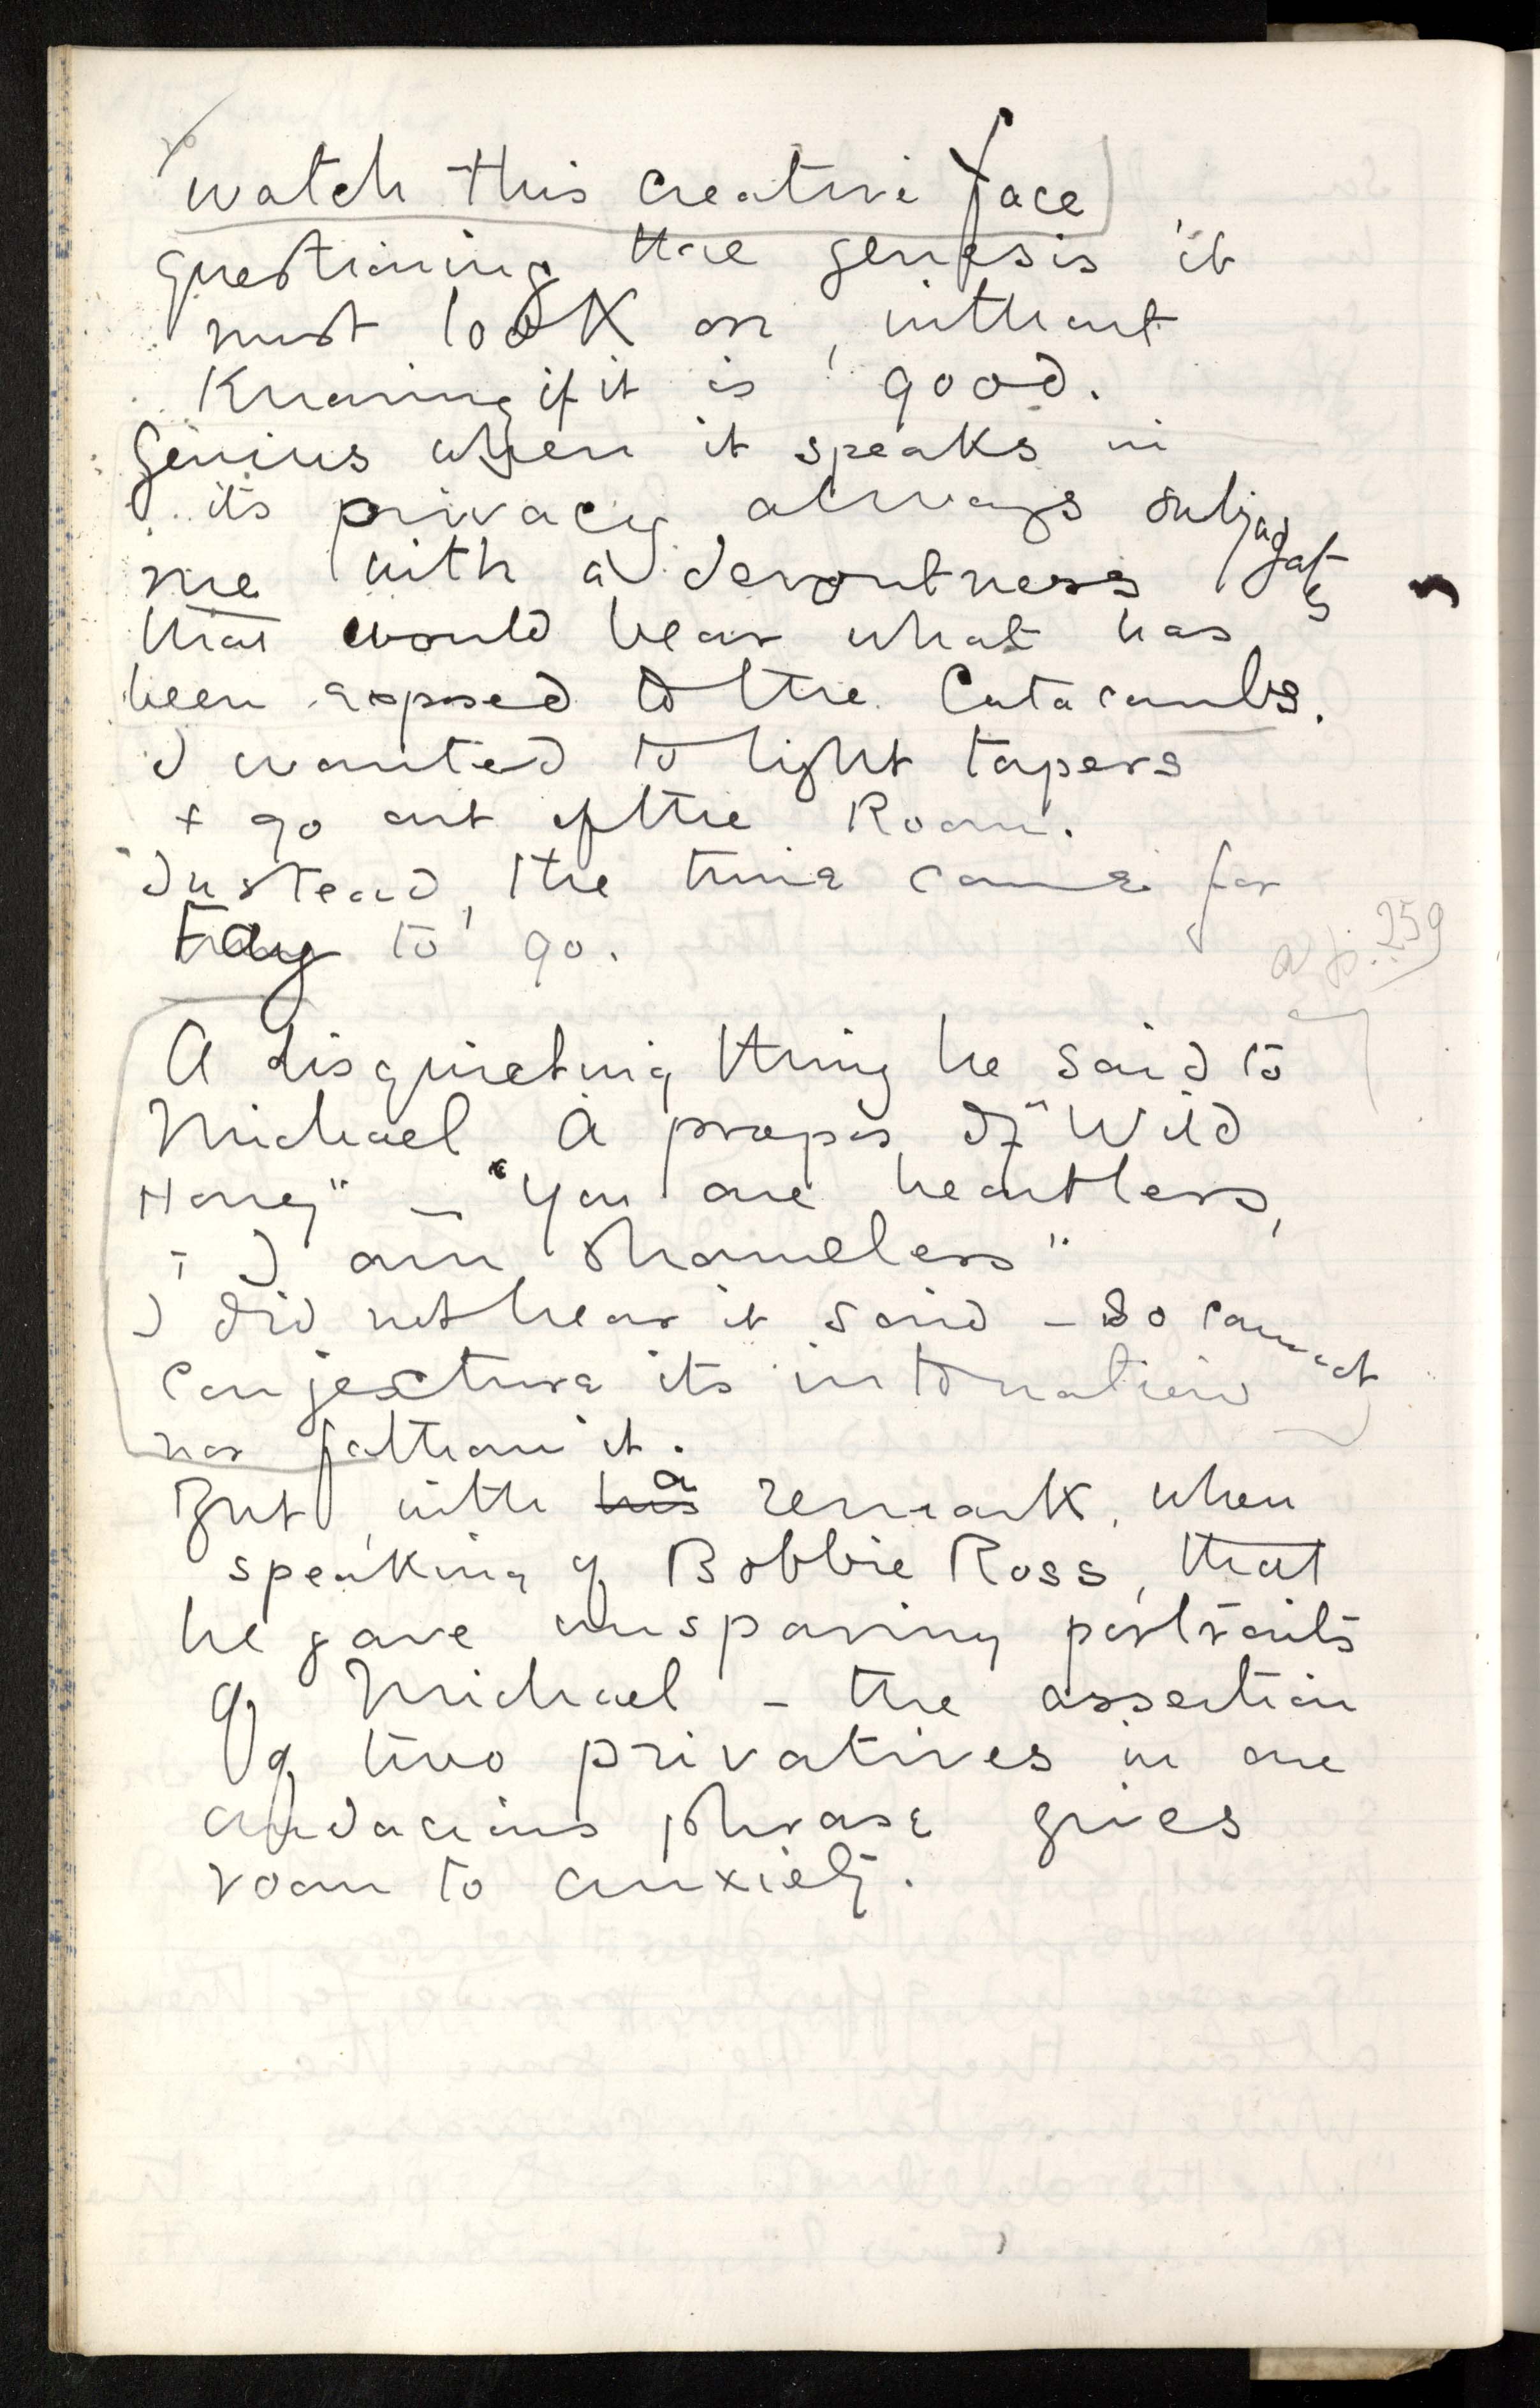 watch this creative face
questioning the genesis it
must look on, without
Knowing if it is good.
Genius when it speaks in
its privacy always subjugates
me with a devoutness
that would bear what has
been exposed to the Catacombs.
I wanted to light tapers
+ go out of the Room.
Instead, the time came for
Fay to go.
259
A disquieting thing he said to
Michael à propos of "Wild
Honey" — "You are heartless,
I am shameless"
I did not hear it said – so cannot
conjecture its intonation
nor fathom it.
But, with his a remark, when
speaking of Bobbie Ross, that
he gave unsparing portraits
of Michael – the assertion
of two privatives in one
audacious phrase gives
room to anxiety.